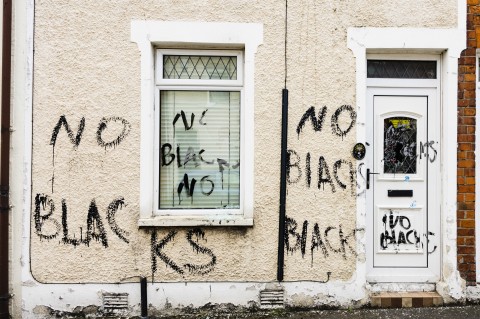 NO
BLACKS
NO
BLACKS
NO
NO
BlACKS
BlACKS
NO
BLACKS